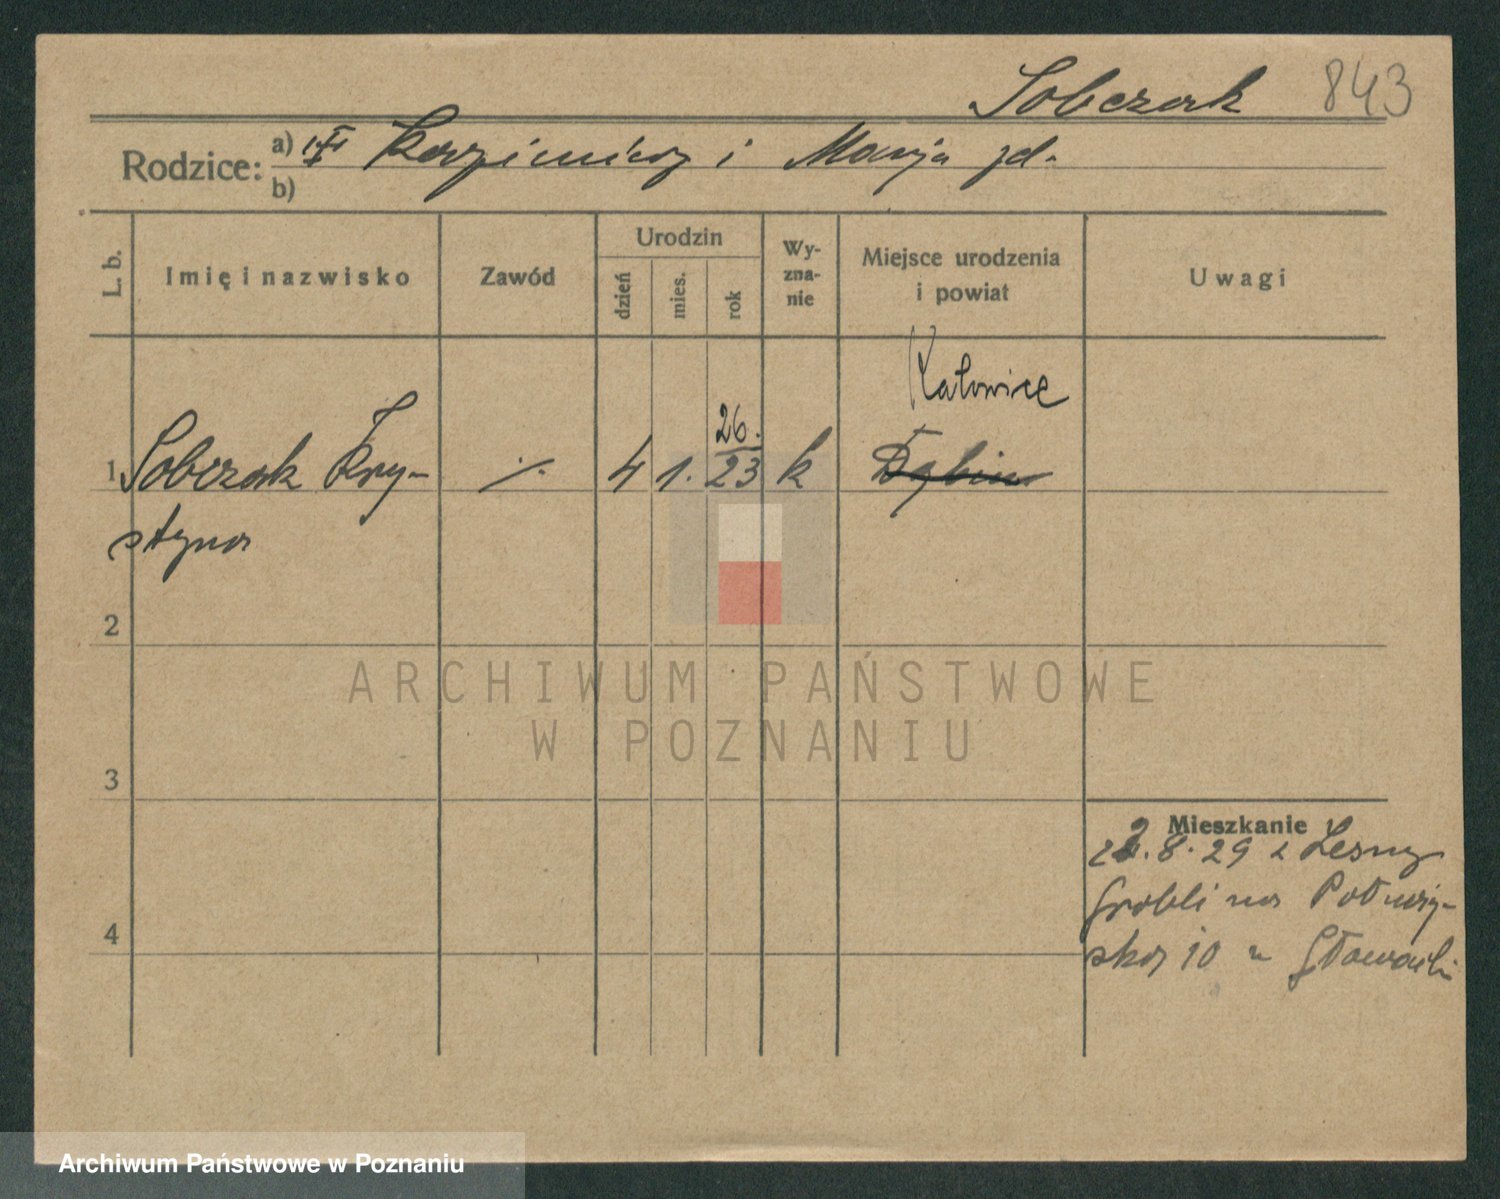 Sobczak 843
Rodzice: a) Kazimierz i Marja zd.
b)
L. b. Imię i nazwisko Zawód Urodzin dzień mies. rok Wyznanie Miejsce urodzenia i powiat Uwagi
Katowice
26.
1 Sobczak Kry- ⁒ 4 1. 23 k Dębiec
styna
2
ARCHIWUM PAŃSTWOWE
W POZNANIU
3
Mieszkanie
22.8.29 z Leśny
Grobli na Półwiej-
ską 10 u Głowacki
4
Archiwum Państwowe w Poznaniu